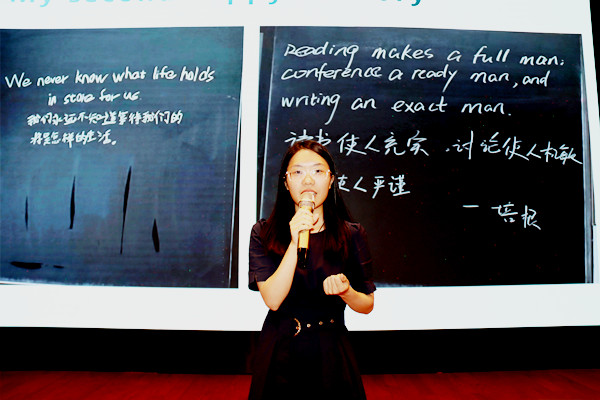 We never know what life holds
in store for us
我们永远不知道等待我们的
将是怎样的生活。
Reading makes a full man;
conference a ready man, and
writing an exact man.
读书使人充实,讨论使人机敏
使人严谨
— 培根